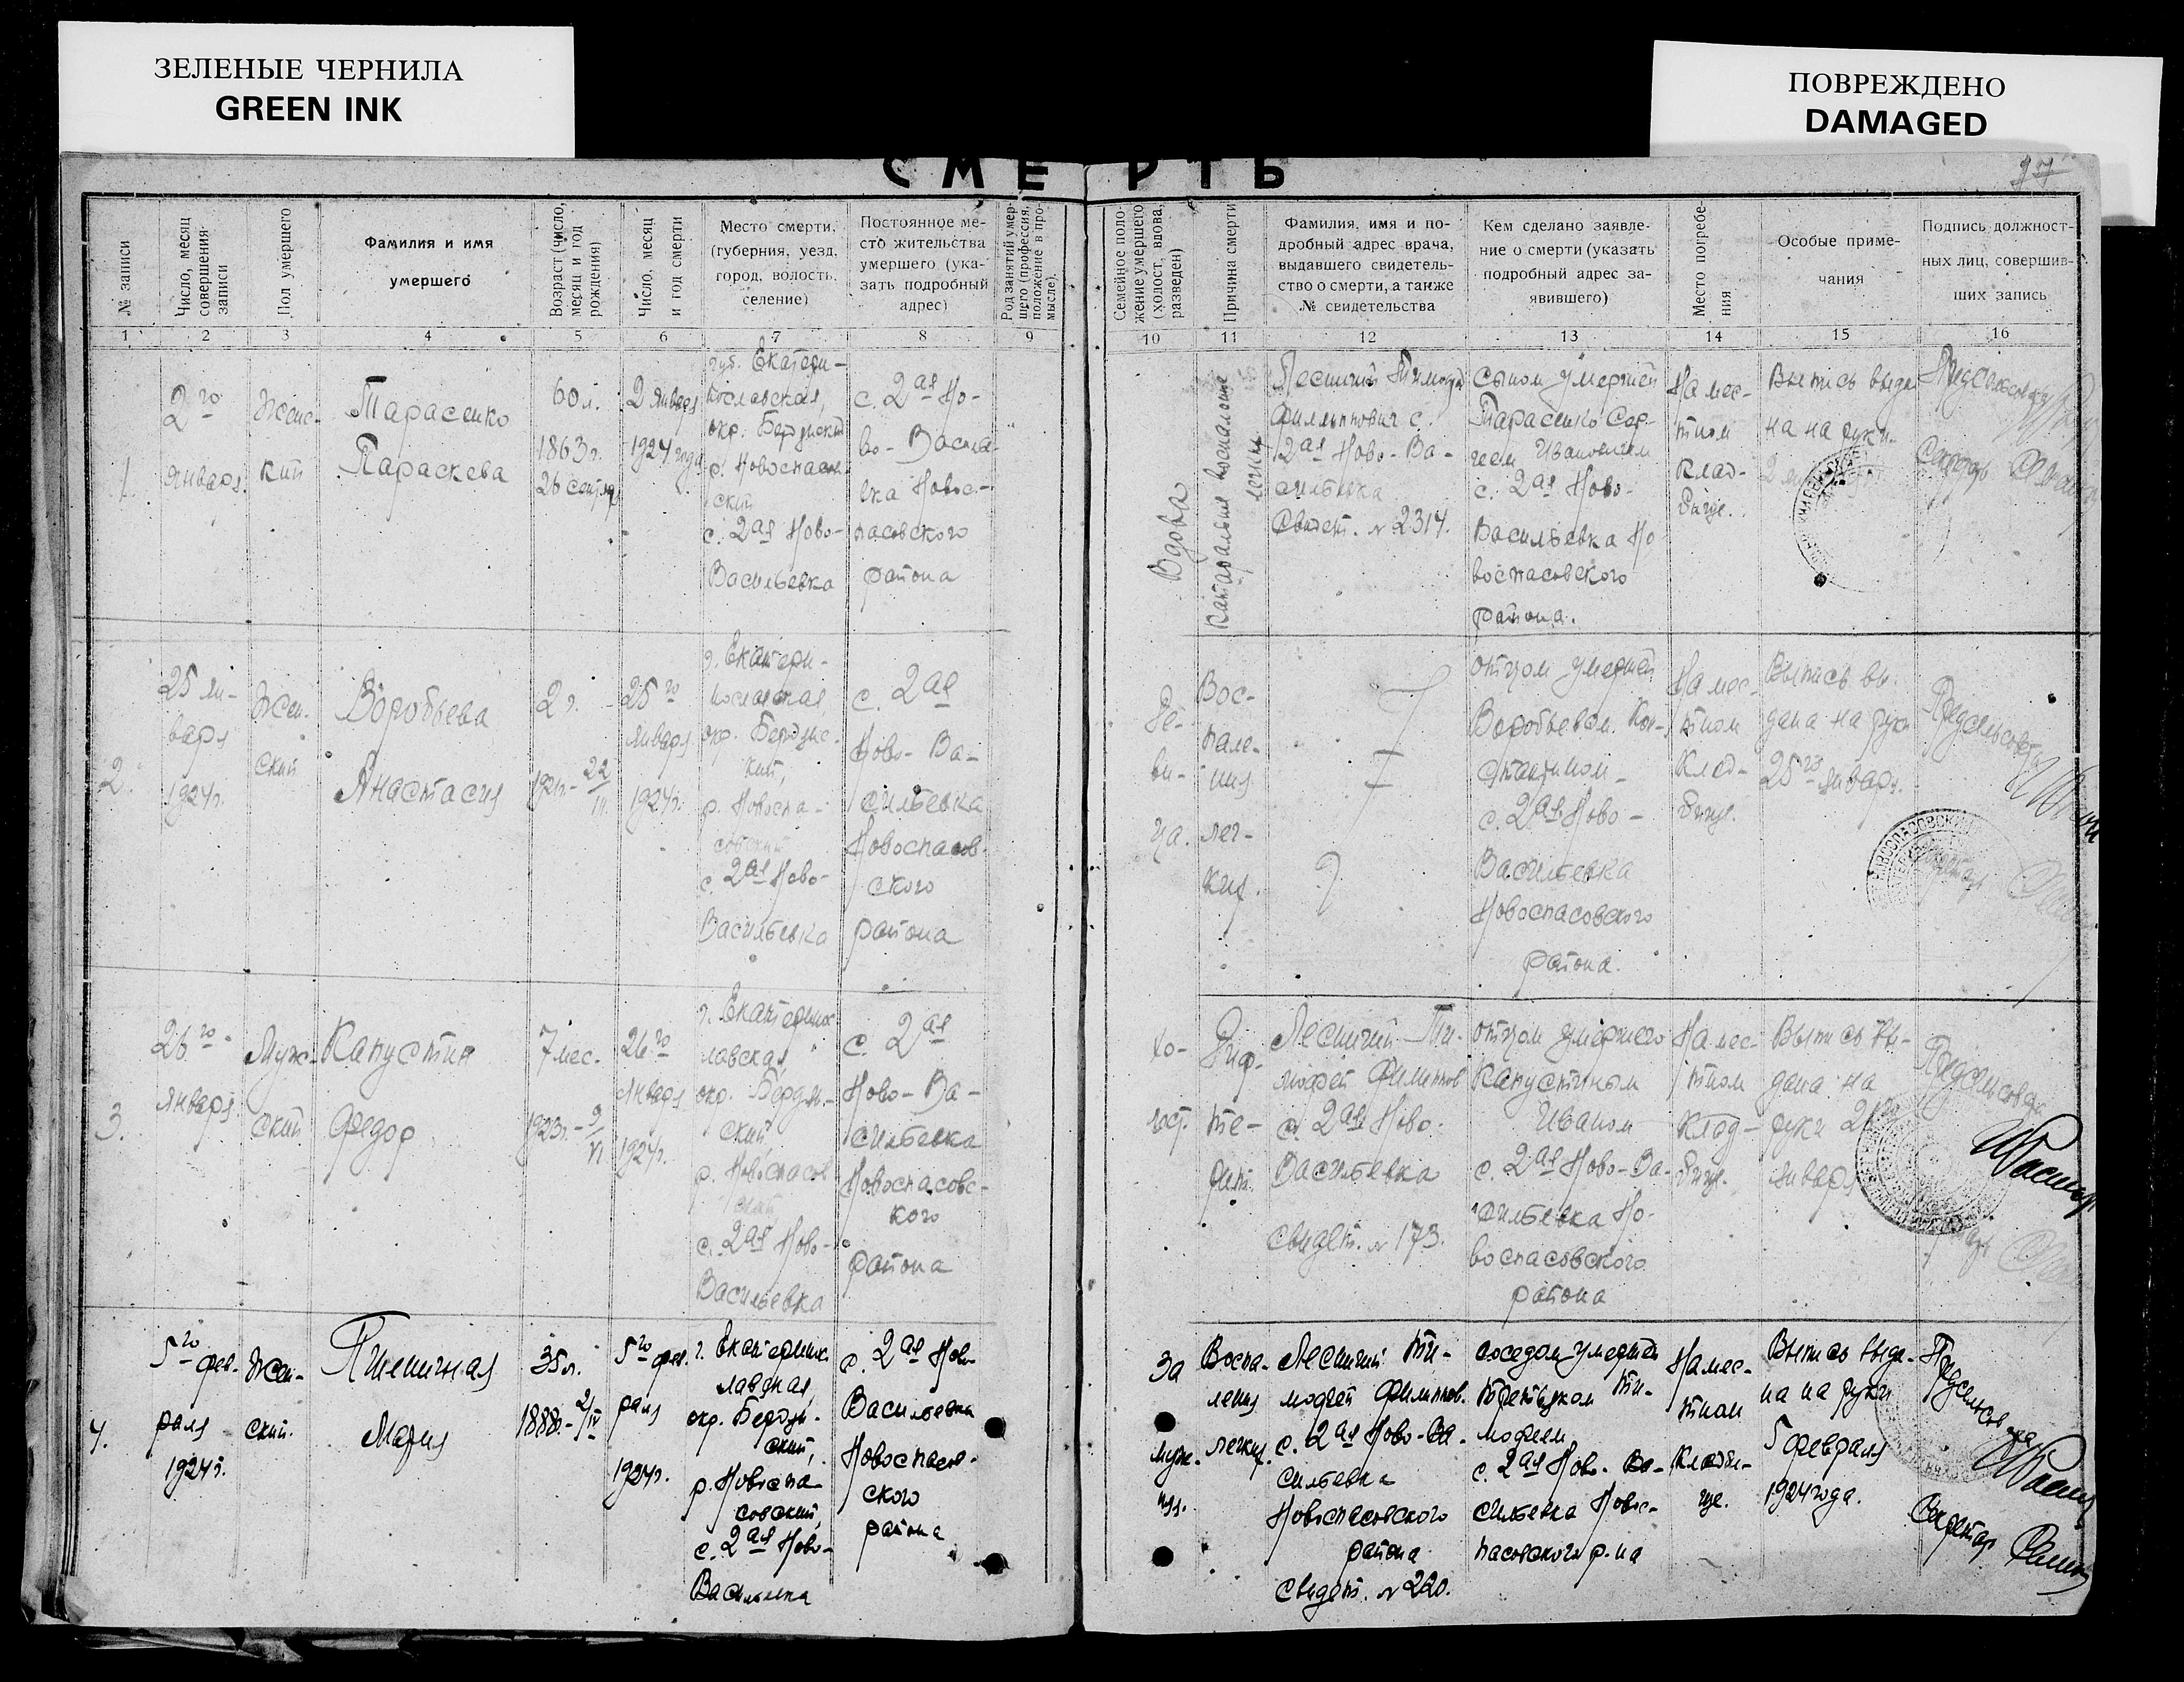 ЗЕЛЕНЫЕ ЧЕРНИЛА
GREEN INK
ПОВРЕЖДЕНО
DAMAGED
СМЕРТЬ
17
№ записи
Число, месяц
совершения
записи
Пол умершего
Фамилия и имя
умершего
Возраст (число,
месяц и год
рождения)
Число, месяц
и год смерти
Место смерти,
(губерния, уезд,
город, волость,
селение)
Постоянное ме-
сто жительства
умершего (ука-
зать подробный
адрес)
Род занятий умер-
шего (профессия,
положение в про-
мысле).
Семейное поло-
жение умершего
(холост, вдова,
разведен)
Причина смерти
Фамилия, имя и по-
дробный адрес врача,
выдавшего свидетель-
ство о смерти, а также
№ свидетельства
Кем сделано заявле-
ние о смерти (указать
подробный адрес за-
явившего)
Место погребе-
ния
Особые приме-
чания
Подпись должност-
ных лиц, совершив-
ших запись
1 2 3 4 5 6 7 8 9 10 11 12 13 14 15 16
1.
2го
января
Женс-
кий
Тарасенко
Параскева
60 л.
1863 г.
26 сентяб
2 января
1924 года
губ. Екатери-
нославская,
окр. Бердянский
р. Новоспасов-
ский
с. 2ая Ново-
Васильевка
с. 2ая Но-
во-Василь-
евка Новос-
пасовского
района
Вдова
Катаральное воспаление
легких
Лесничий Тимофей
Филиппович с.
2ая Ново-Ва-
сильевка
Свидет. № 2314.
Сыном умершей
Тарасенко Сер-
геем Ивановичем
с. 2ая Ново-
Васильевка Но
воспасовского
района.
На мес-
тном
клад-
бище.
Выпись выда
на на руки
2
Секретарь
2.
25 ян-
варя
1924г.
Жен-
ский
Воробьева
Анастасия
2 г.
1921г.-22/III
25го
января
1924г.
г. Екатери-
нославская
окр. Бердянс-
кий,
р. Новоспа-
совский
с. 2ая Ново-
Васильевка
с. 2ая
Ново-Ва-
сильевка
Новоспасов-
ского
района
Де-
ви-
ца.
Вос-
пале-
ния
лег-
ких.
отцом умершей
Воробьевым Кон-
стантином
с. 2ая Ново-
Васильевка
Новоспасовского
района.
На мес-
тном
клад-
бище.
Выпись вы-
дана на руки
25го января.
Предсельсовета
3.
26го
января
Муж-
ский
Капустин
Федор
7 мес.
1923г.-9/VI
26го
января
1924г.
г. Екатеринос
лавская,
окр. Бердян-
ский,
р. Новоспасов
ский
с. 2ая Ново-
Васильевка
с. 2ая
Ново-Ва-
сильевка
Новоспасовс-
кого
района
Хо-
лост.
Диф-
те-
рит.
Лесничий Ти-
мофей Филиппов
с. 2ая Ново-
Васильевка
Свидет. № 173.
отцом умершего
Капустиным
Иваном
с. 2ая Ново-Ва-
сильевка Но-
воспасовского
района
На мес-
тном
Клад-
бище.
Выпись вы-
дана на
руки 26
января
Предсельсовета
4.
5го фев-
раля
1924г.
Жен-
ский.
Пшеничная
Мария
35 л.
1888г.-2/IV
5го фев-
раля
1924г.
г. Екатеринос
лавская,
окр. Бердян-
ский,
р. Новоспа-
совский,
с. 2ая Ново-
Васильевка
с. 2ая Ново-
Васильевка
Новоспасов-
ского
района
За
муж-
няя.
Воспа-
ления
легких.
Лесничий Ти-
мофей Филиппов.
с. 2ая Ново-Ва-
сильевка
Новоспасовского
района
Свидет. № 220.
соседом умершей
Третьяком Ти-
мофеем
с. 2ая Ново-Ва-
сильевка Новос-
пасовского р-на
На мес-
тном
кладби-
ще.
Выпись выда-
на на руки
5 февраля
1924 года.
Предсельсовета
Секретар